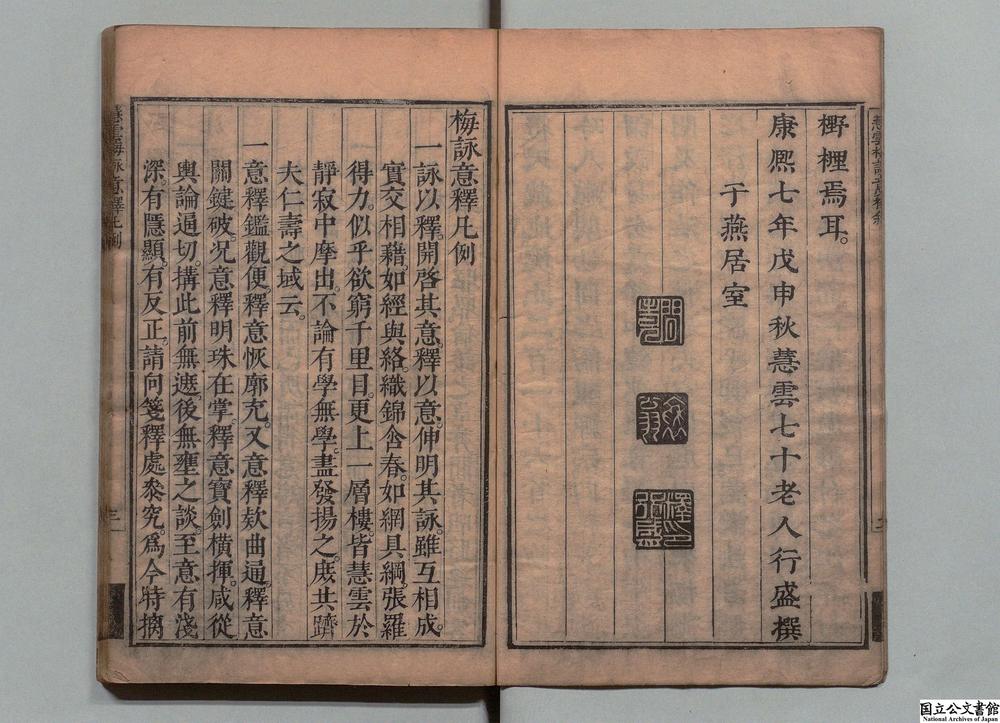 野裡焉耳。
康熙七年戊申秋慧雲七十老人行盛撰
于燕居室
梅詠意釋凡例
一詠以釋。開啓其意。釋以意。伸明其詠。雖互相成。
實交相藉如經與絡。織錦含春。如網具綱。張羅
得力。似乎欲窮千里目。更上一層樓。皆慧雲於
靜寂中摩出。不論有學無學。盡發揚之。庶共躋
夫仁壽之域云。
一意釋鑑觀便。釋意恢廓充。又意釋欵曲通。釋意
關鍵破。况意釋明珠在掌。釋意寶劍橫揮。咸從
輿論逼切。搆此前無遮。後無壅之談。至意有淺
深。有隱顯。有反正。請向箋釋處叅究。爲今特摘
梅詠意釋凡例
三
国立公文書館
National Archives of Japan